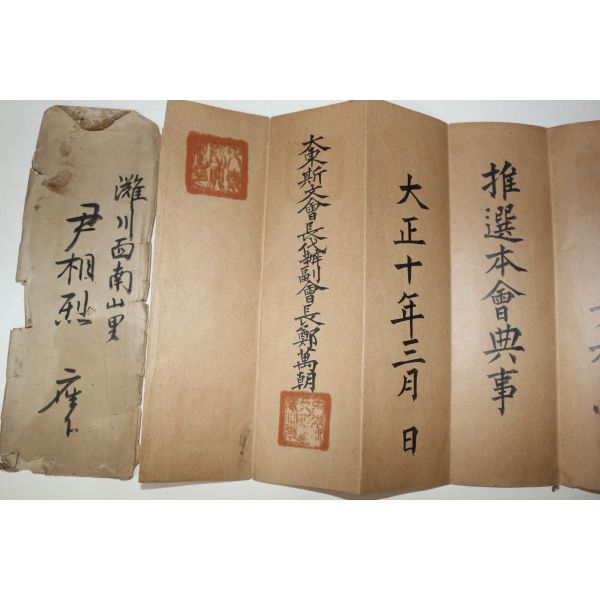 推選本會典事
大正十年三月 日
大東斯文會長代辦副會長鄭萬朝
灘川西南山里
尹相烈 座下